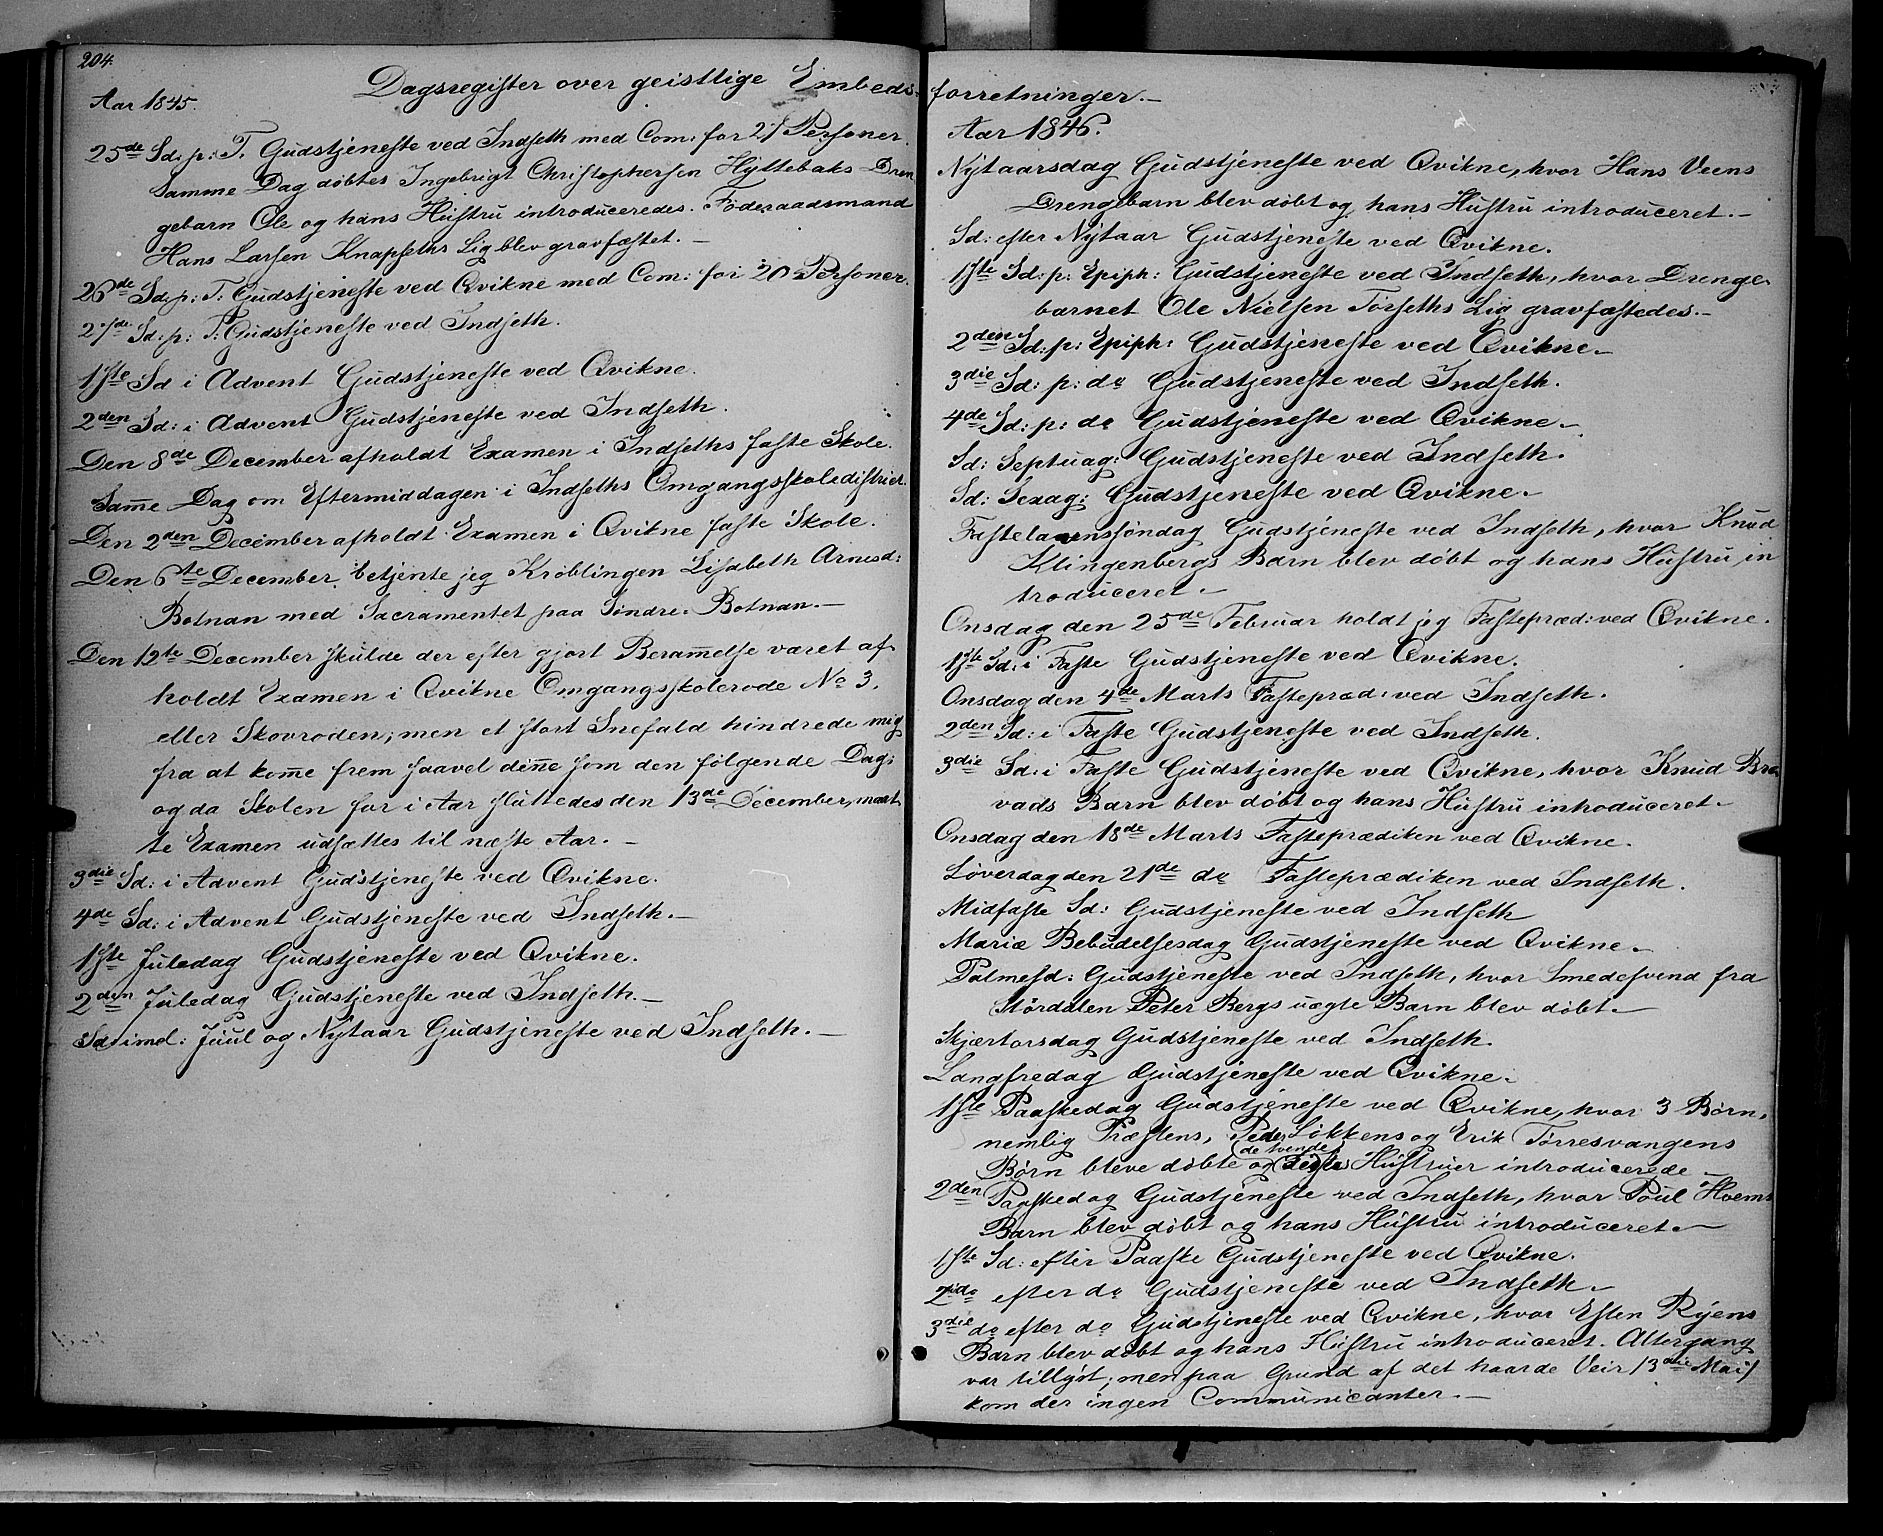 204.
Dagsregister over geistlige Embeds-
Aar 1845.
25de Sd: p: T. Gudstjeneste ved Indseth med Com: for 27 Personer.
Samme Dag døbtes Ingebrigt Christophersen Hyttebaks Dren
gebarn Ole og hans Hustru introduceredes. Føderaadsmand
Hans Larsen Knapseths Lig blev gravfæstet.-
26de Sd: p: T: Gudstjeneste ved Qvikne med Com: for 20 Personer.
27de Sd: p: T: Gudstjeneste ved Indseth.
1ste Sd i Advent Gudstjeneste ved Qvikne.
2den Sd: i Advent Gudstjeneste ved Indseth.
Den 8de December afholdt Examen i Indseths faste Skole.
Sam̅e Dag om Eftermiddagen i Indseths Omgangsskoledistrict.
Den 2den December afholdt Examen i Qvikne faste Skole.
Den 6te December betjente jeg Krøblingen Lisabeth Arnesd:
Botnan med Sacramentet paa Søndre Botnan.-
Den 12te December skulde der efter gjort Beram̅else været af-
holdt Examen i Qvikne Omgangsskolerode No 3,
eller Skovroden; men et stort Snefald hindrede mig
fra at kom̅e frem saavel den̅e som den følgende Dag;
og da Skolen for i Aar sluttedes den 13de December, maat
te Examen udsættes til næste Aar.-
3die Sd: i Advent Gudstjeneste ved Qvikne.
4de Sd: i Advent Gudstjeneste ved Indseth.-
1ste Juledag Gudstjeneste ved Qvikne.
2den Juledag Gudstjeneste ved Indseth.-
Sd: imel: Juul og Nytaar Gudstjeneste ved Indseth.-
forretninger.-
Aar 1846.
Nytaarsdag Gudstjeneste ved Qvikne, hvor Hans Veens
Drengebarn blev døbt og hans Hustru introduceret.-
Sd: efter Nytaar Gudstjeneste ved Qvikne.
1ste Sd: p: Epiph: Gudstjeneste ved Indseth, hvor Drenge-
barnet Ole Nielsen Torseths Lig gravfæstedes.-
2den Sd: p: Epiph: Gudstjeneste ved Qvikne.-
3die Sd: p: do Gudstjeneste ved Indseth.
4de Sd: p: do Gudstjeneste ved Qvikne.-
Sd: Septuag: Gudstjeneste ved Indseth.
Sd: Sexag: Gudstjeneste ved Qvikne.-
Fastelavenssøndag Gudstjeneste ved Indseth, hvor Knud
Klingenbergs Barn blev døbt og hans Hustru in
troduceret.-
Onsdag den 25de Februar holdt jeg Fastepræd: ved Qvikne.
1ste Sd: i Faste Gudstjeneste ved Qvikne.
Onsdag den 4de Marts Fastepræd: ved Indseth.
2den Sd: i Faste Gudstjeneste ved Indseth.
3die Sd: i Faste Gudstjeneste ved Qvikne, hvor Knud Bra
vads Barn blev døbt og hans Hustru introduceret.-
Onsdag den 18de Marts Fasteprædiken ved Qvikne.
Løverdag den 21de do Fasteprædiken ved Indseth.
Midfaste Sd: Gudstjeneste ved Indseth
Mariæ Bebudelsesdag Gudstjeneste ved Qvikne.-
Palmesd: Gudstjeneste ved Indseth, hvor Smedesvend fra
Størdalen Peter Bergs uægte Barn blev døbt.-
Skjærtorsdag Gudstjeneste ved Indseth.
Langfredag Gudstjeneste ved Qvikne.-
1ste Paaskedag Gudstjeneste ved Qvikne, hvor 3 Børn,
nemlig Præstens, Peder Løkkens og Erik Torresvangens
Børn bleve døbte og (de tvende) Hustruer introducerede.-
2den Paaskedag Gudstjeneste ved Indseth, hvor Poul Hoems
Barn blev døbt og hans Hustru introduceret.-
1ste Sd: efter Paaske Gudstjeneste ved Qvikne.
2 do efter do Gudstjeneste ved Indseth.-
3die do efter do Gudstjeneste ved Qvikne, hvor Esten Ryens
Barn blev døbt og hans Hustru introduceret. Altergang
var tillyst; men paa Grund af det haarde Veir (3die Mai)
kom der ingen Communicanter.-